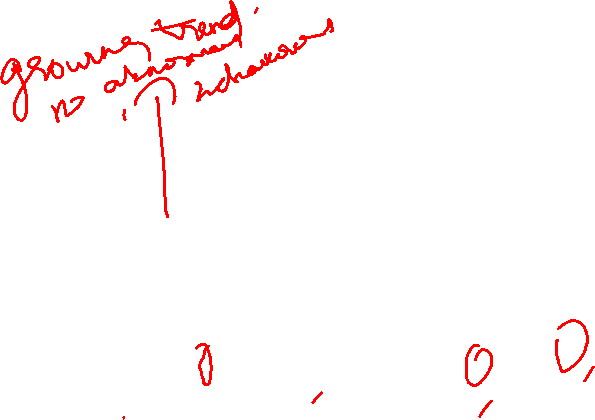 growing trend.
no abnormal
behaviours